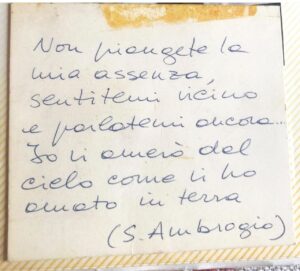 Non piangete la
mia assenza,
sentitemi vicino
e parlatemi ancora...
Io vi amerò dal
cielo come vi ho
amato in terra
(S. Ambrogio)